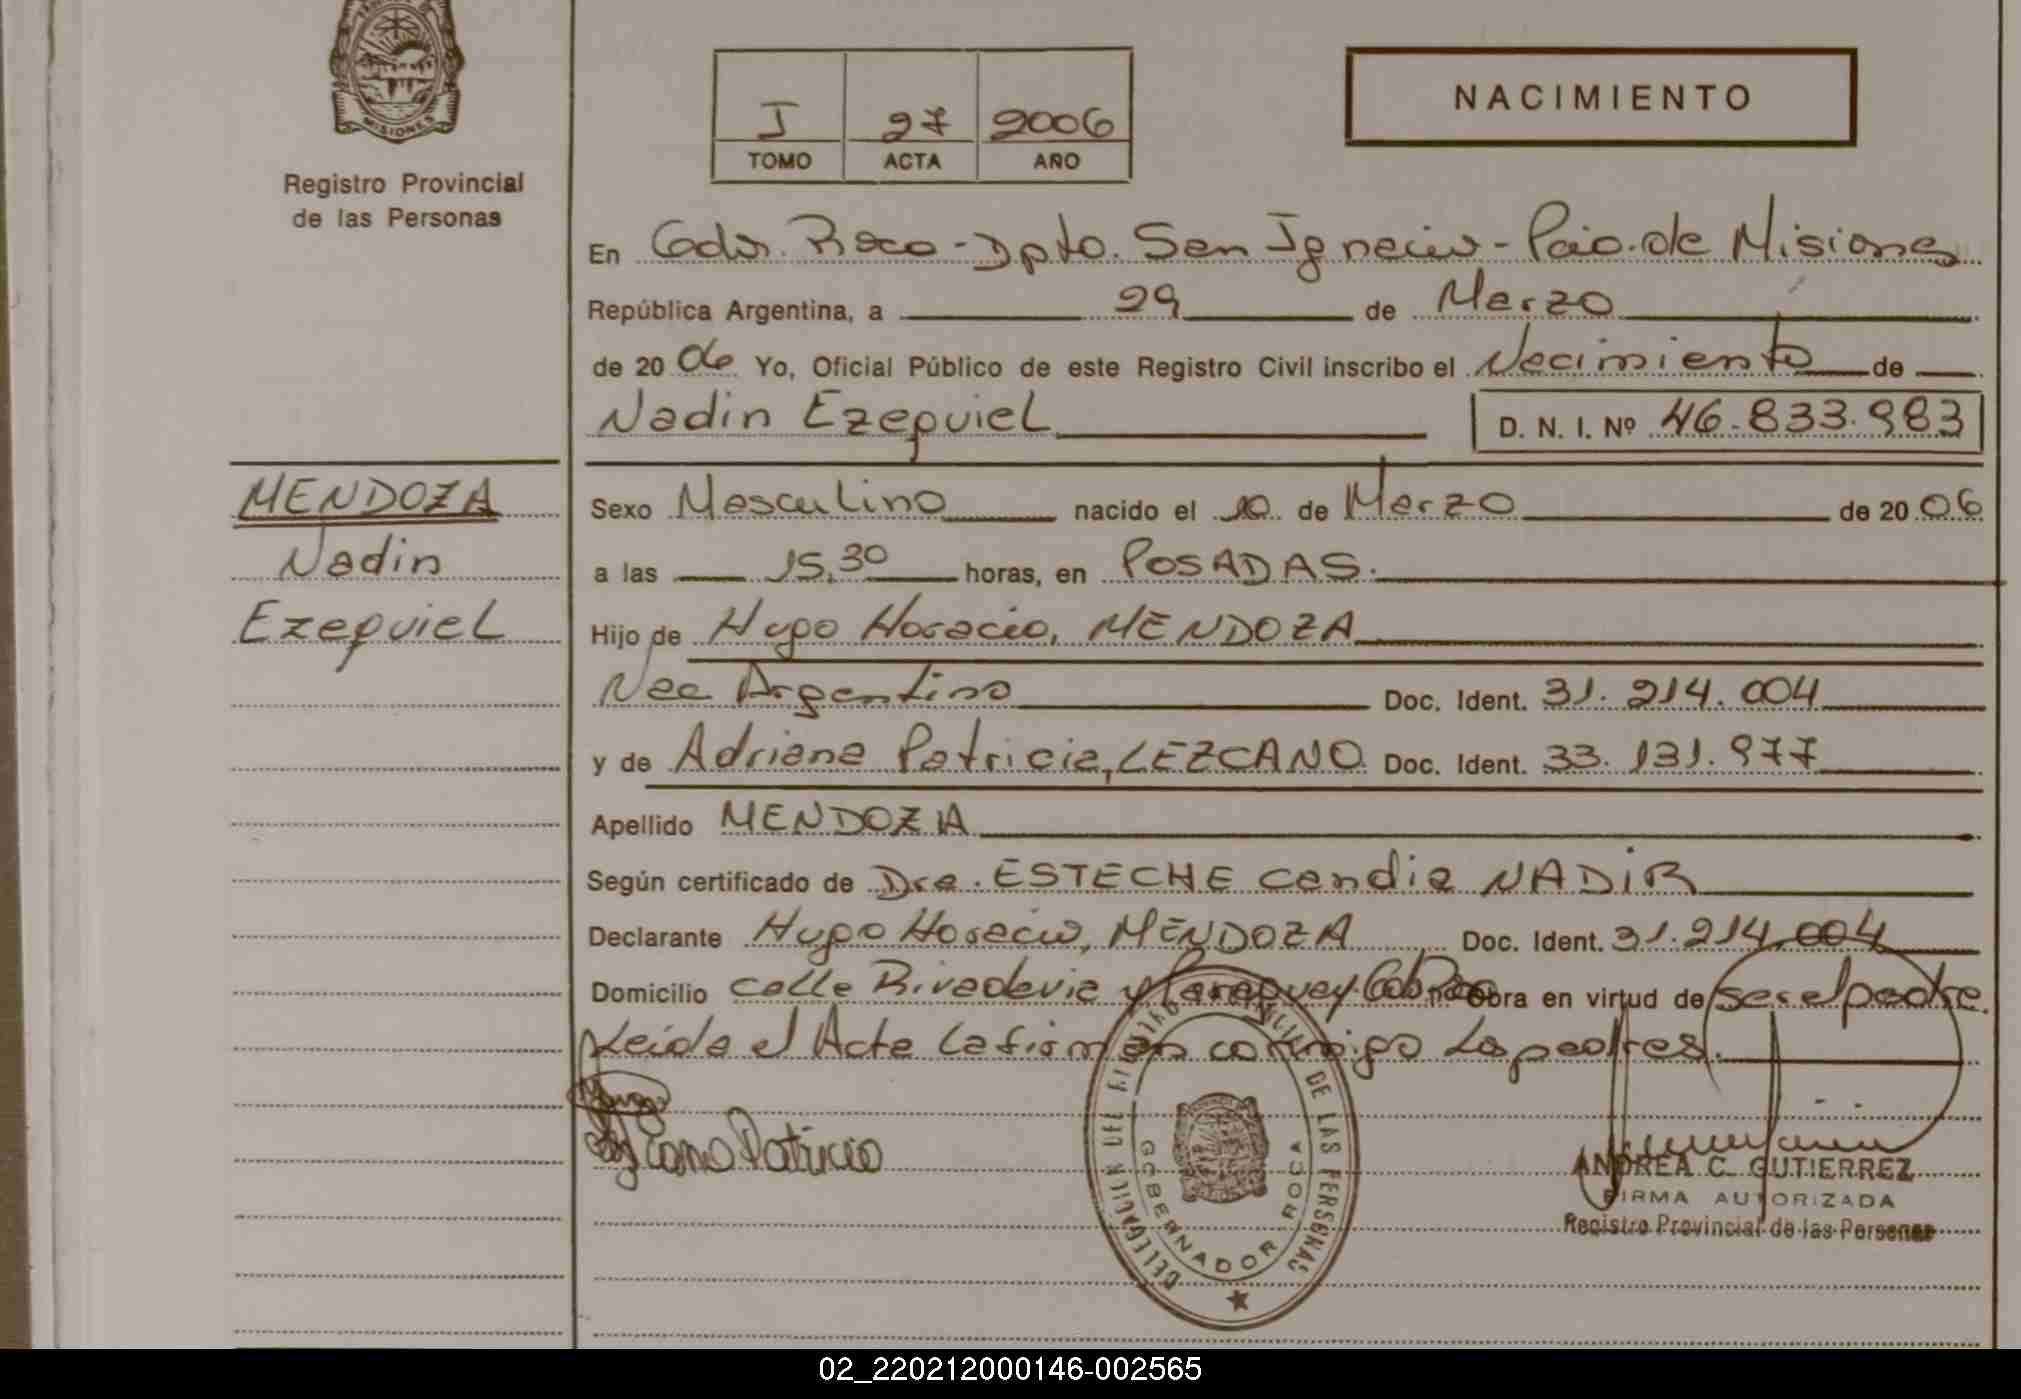 MISIONES
Registro Provincial
de las Personas
I 27 2006
TOMO ACTA AÑO
NACIMIENTO
En Gdor. Roca - Dpto. San Ignacio - Pcia. de Misiones
República Argentina, a 29 de Marzo
de 20 06 Yo, Oficial Público de este Registro Civil inscribo el Nacimiento de
Nadin Ezequiel D. N. I. Nº 46.833.983
MENDOZA
Nadin
Ezequiel
Sexo Masculino nacido el 10 de Marzo de 20 06
a las 15,30 horas, en POSADAS.
Hijo de Hugo Horacio, MENDOZA
Nac Argentino Doc. Ident. 31.214.004
y de Adriana Patricia, LEZCANO Doc. Ident. 33.131.977
Apellido MENDOZA
Según certificado de Dra. ESTECHE Candia NADIR
Declarante Hugo Horacio, MENDOZA Doc. Ident. 31.214.004
Domicilio calle Rivadavia y Paraguay Obra en virtud de ser el padre.
Leída el Acta la firman conmigo los padres.
Lezcano Patricia
DELEGACION DEL REGISTRO PROVINCIAL DE LAS PERSONAS
GOBERNADOR ROCA
ANDREA C. GUTIERREZ
FIRMA AUTORIZADA
Registro Provincial de las Personas
02_220212000146-002565